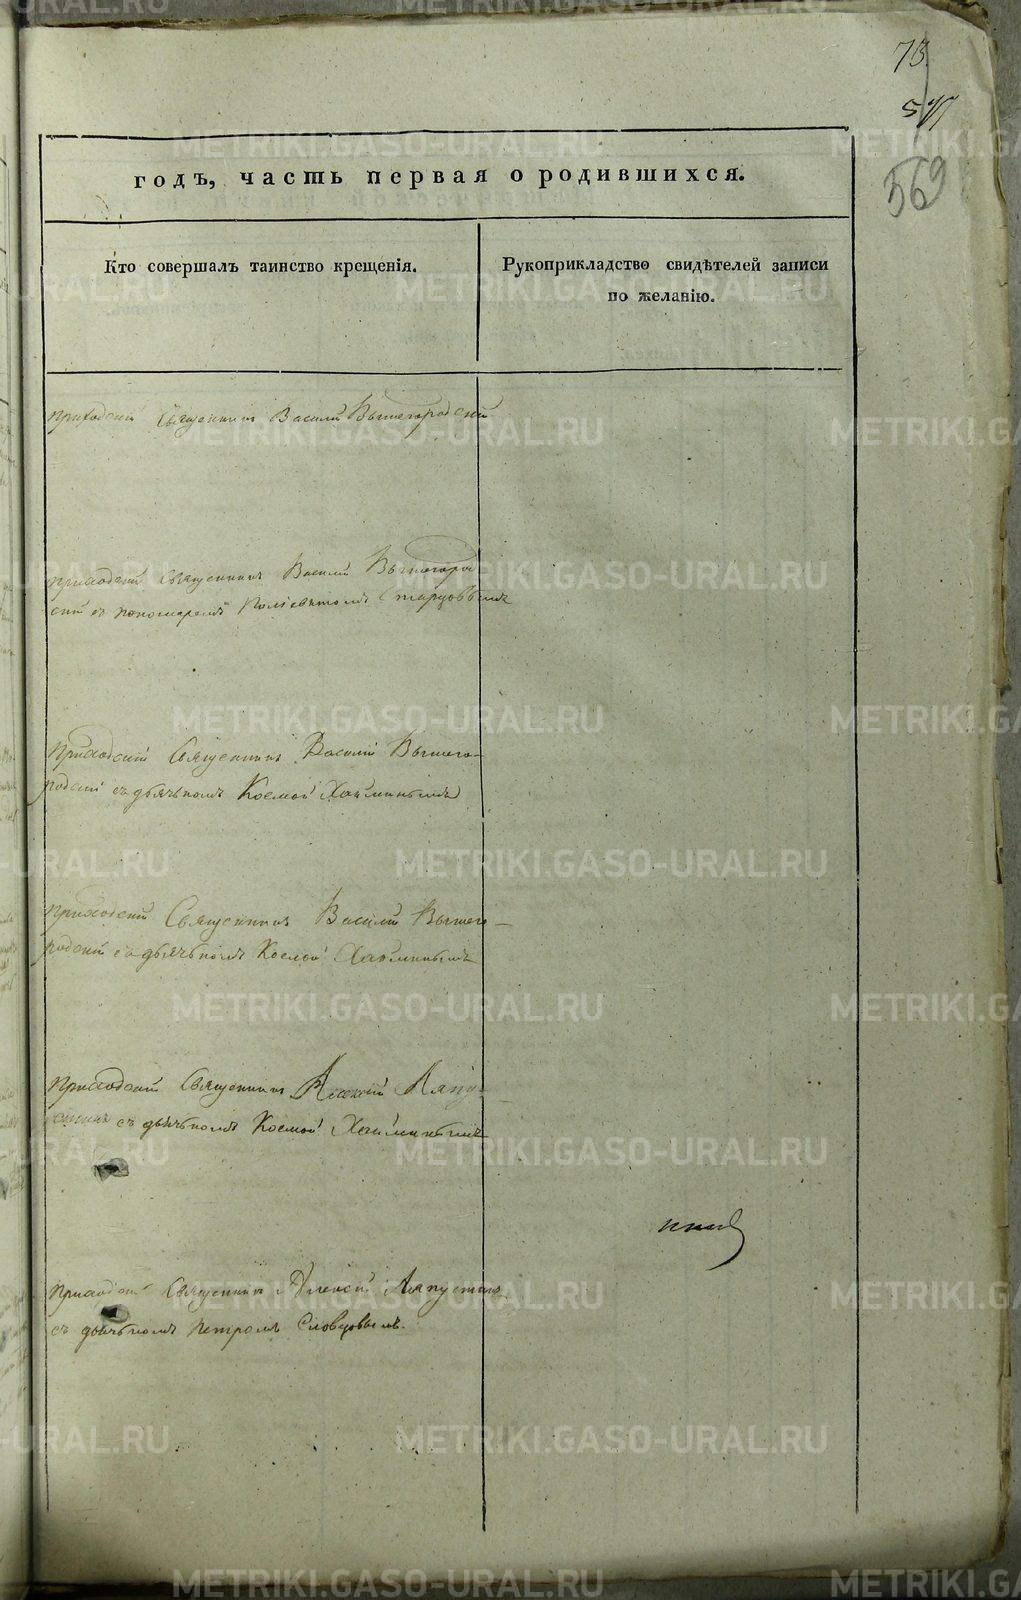 73
569
годъ, часть первая о родившихся.
Кто совершалъ таинство крещенія.
Рукоприкладство свидѣтелей записи
по желанію.
приходскій Священникъ Василій Вышегородскій
приходскій Священникъ Василій Вышегород
скій съ пономаремъ Поліевктомъ Старцовымъ
приходскій Священникъ Василій Вышего-
родскій съ дьячькомъ Космой
приходскій Священникъ Василій Вышего-
родскій съ дьячькомъ Космой
приходскій Священникъ Алексій Ляпу-
стинъ съ дьячькомъ Космой
приходскій Священникъ Алексій Ляпустинъ
съ дьячькомъ Петромъ Словцовымъ.
METRIKI.GASO-URAL.RU